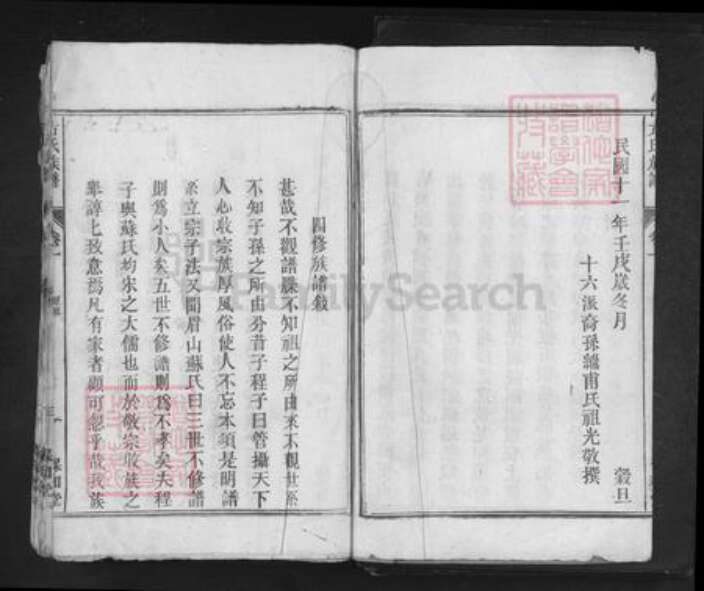 民國十一年壬戌歲冬月 穀旦
十六派裔孫繼甫氏祖光敬撰
四修族譜敘
甚哉不觀譜牒不知祖之所由來不觀世系
不知子孫之所由分昔子程子曰管攝天下
人心收宗族厚風俗使人不忘本須是明譜
系立宗子法又聞眉山蘇氏曰三世不修譜
則為小人矣五世不修譜則為不孝矣夫程
子與蘇氏均宋之大儒也而於敬宗收族之
舉諄七致意焉凡有家者顧可忽乎哉我族
氏族譜
卷一
FamilySearch